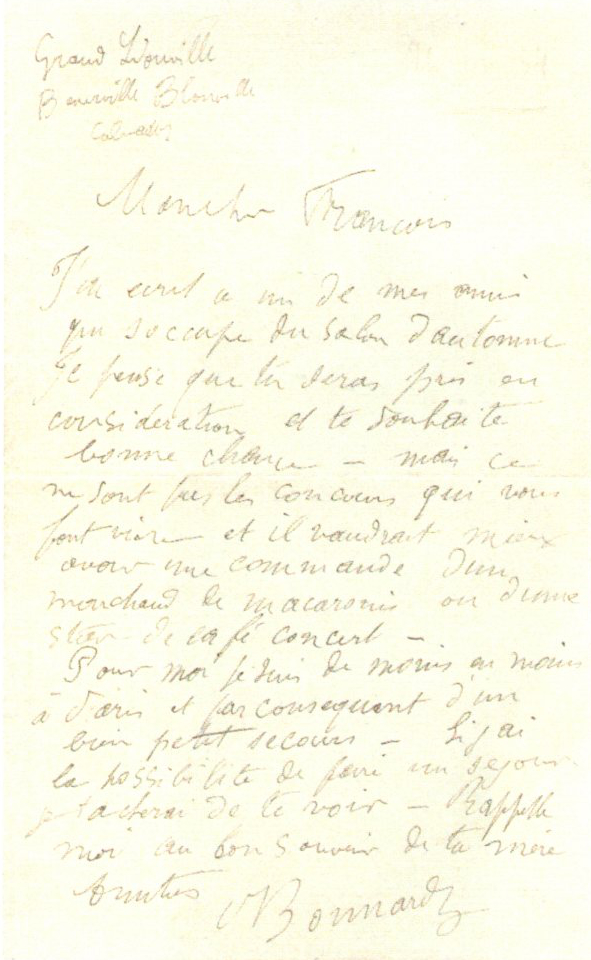 Grand
Benerville Blonville
Calvados
Mon cher François
J'ai ecrit a un de mes amis
qui s'occupe du Salon d'automne
Je pense que tu seras pris en
consideration et te souhaite
bonne chance – mais ce
ne sont pas les concours qui vous
font vivre et il vaudrait mieux
avoir une commande d'un
marchand de macaronis ou d'une
star de café concert –
Pour moi je suis de moins en moins
à Paris et par consequent d'un
bien petit secours – Si j'ai
la possibilite de faire un sejour
je tacherai de te voir – Rappelle
moi au bon souvenir de ta mère
Amities
Bonnard